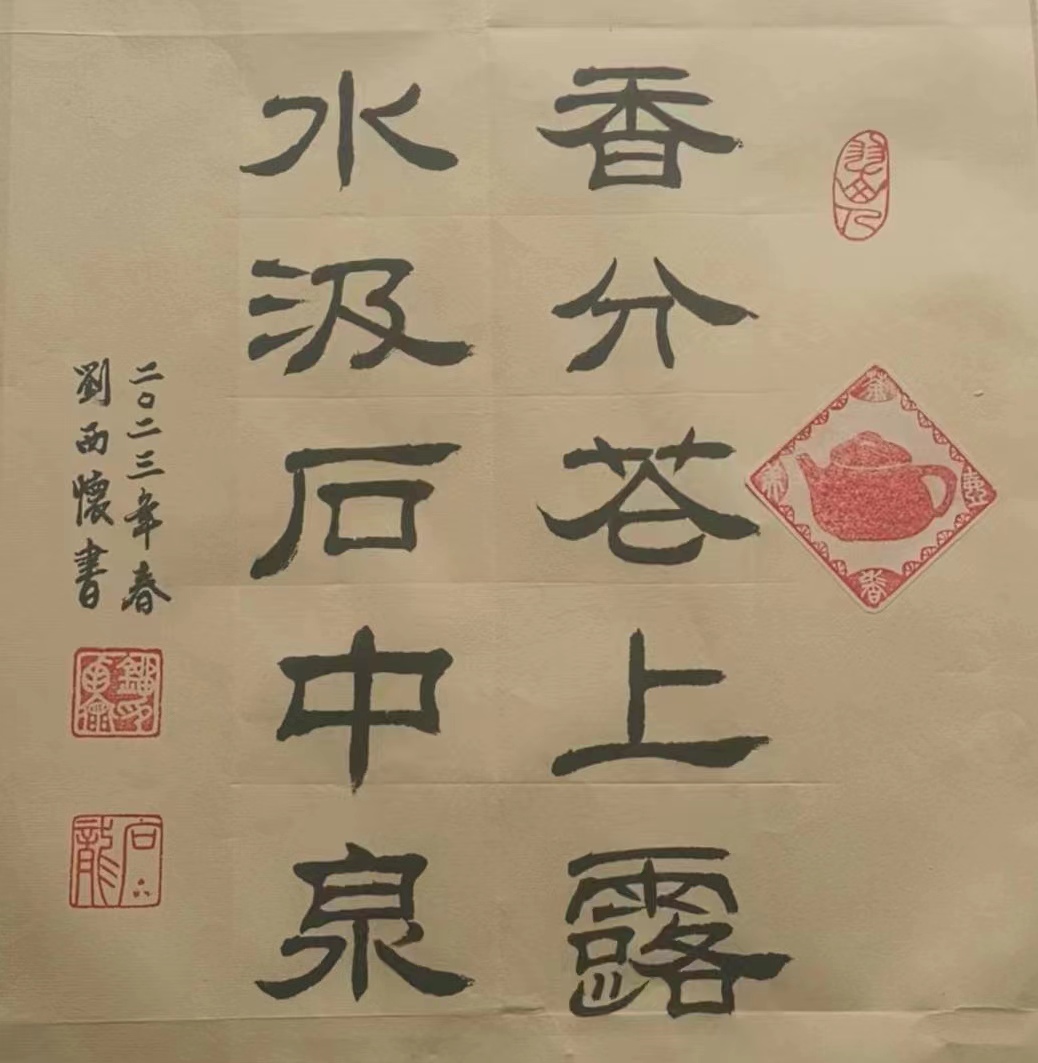 香分花上露
水汲石中泉
二〇二三年春
劉西懷書